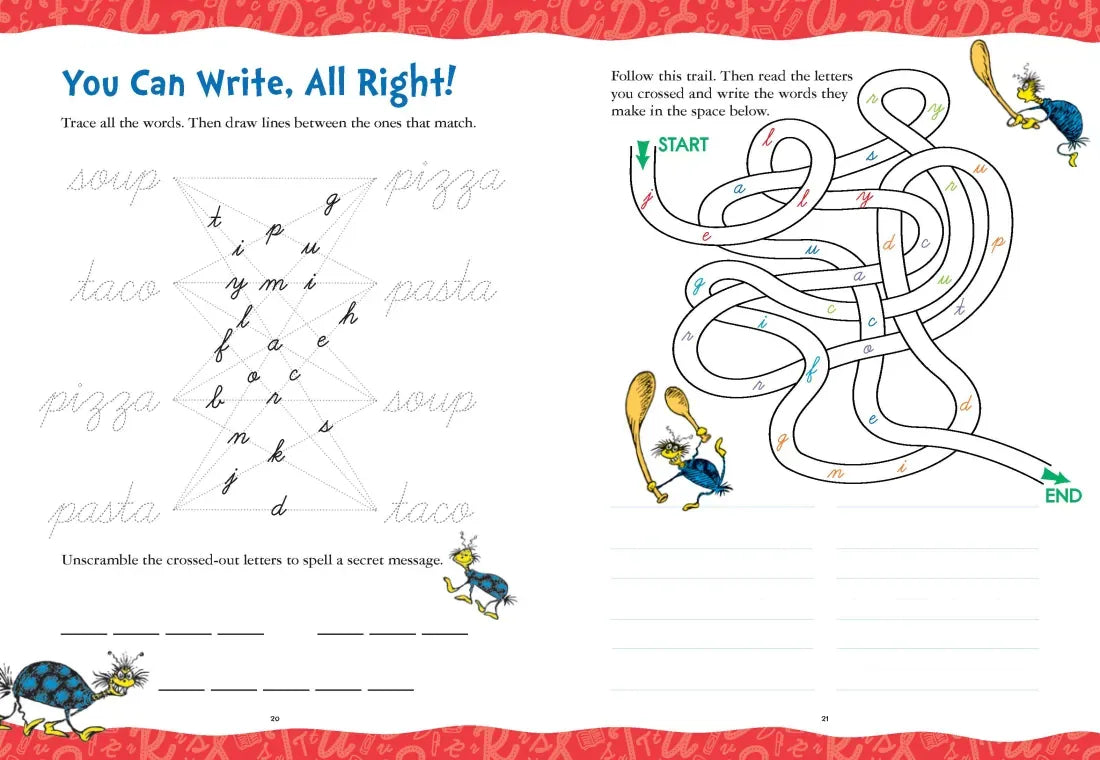 You Can Write, All Right!
Trace all the words. Then draw lines between the ones that match.
soup pizza
g
t p
i u
taco y m i pasta
l h
f a e
o c
pizza b r soup
n s
k
j
pasta d taco
Unscramble the crossed-out letters to spell a secret message.
20
Follow this trail. Then read the letters
you crossed and write the words they
make in the space below.
START
r y
l s u
a r
j l y
e u d c p
g a u
c t
i c
r o
r f
d
e
g n i
END
21